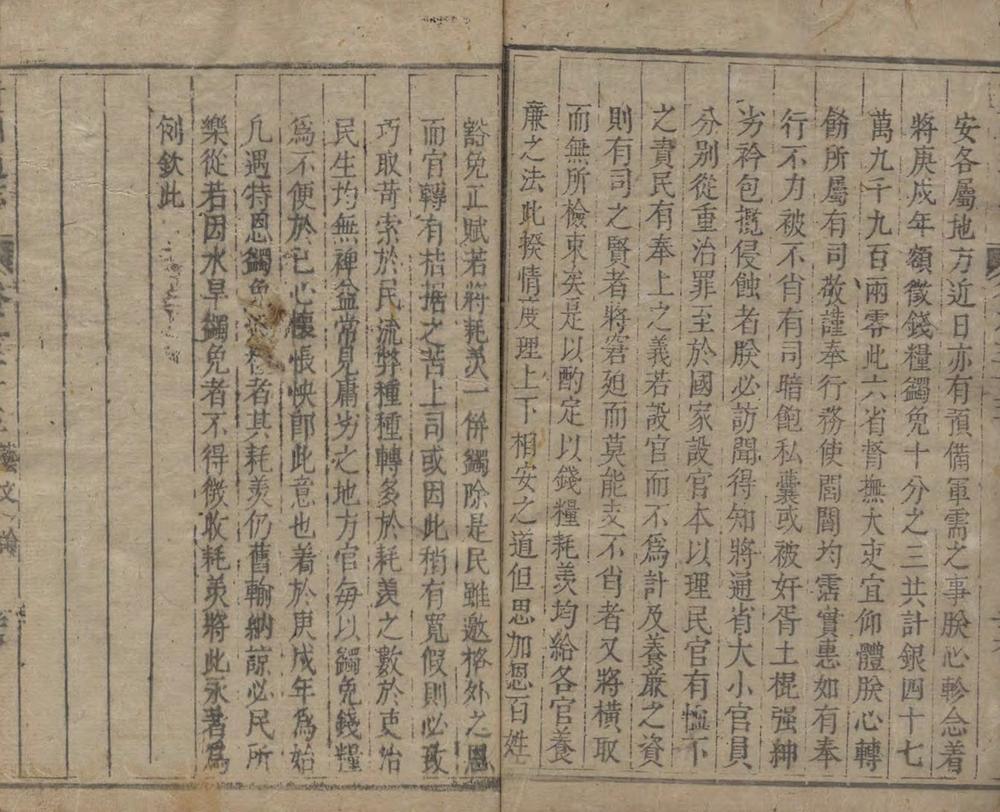 安各屬地方近日亦有預備軍需之事朕心軫念着
將庚戌年額徵錢糧蠲免十分之三共計銀四十七
萬九千九百兩零此六省督撫大吏宜仰體朕心轉
飭所屬有司敬謹奉行務使閭閻均霑實惠如有奉
行不力被不肖有司暗飽私囊或被奸胥土棍强紳
劣衿包攬侵蝕者朕必訪聞得知將通省大小官員
分别從重治罪至於國家設官本以理民官有恤下
之責民有奉上之義若設官而不爲計及養廉之資
則有司之賢者將窘廹而莫能支不肖者又將橫取
而無所檢束矣是以酌定以錢糧耗羨均給各官養
廉之法此揆情度理上下相安之道但思加恩百姓
豁免正賦若將耗羨一併蠲除是民雖邀格外之恩
而官轉有拮据之苦上司或因此稍有寬假則必致
巧取苛索於民流弊種種轉多於耗羨之數於吏治
民生均無裨益常見庸劣之地方官每以蠲免錢糧
爲不便於己心懷悵怏卽此意也着於庚戌年爲始
凡遇特恩蠲免錢糧者其耗羨仍舊輸納諒必民所
樂從若因水旱蠲免者不得徵收耗羨將此永著爲
例欽此
藝文 諭